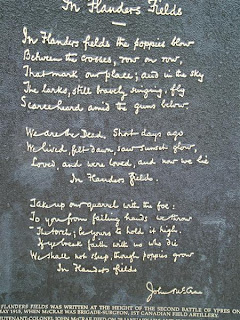 In Flanders Fields
In Flanders fields the poppies blow
Between the crosses, row on row,
That mark our place; and in the sky
The larks, still bravely singing, fly
Scarce heard amid the guns below.
We are the Dead. Short days ago
We lived, felt dawn, saw sunset glow,
Loved, and were loved, and now we lie
In Flanders fields.
Take up our quarrel with the foe:
To you from failing hands we throw
The torch; be yours to hold it high.
If ye break faith with us who die
We shall not sleep, though poppies grow
In Flanders fields
John McCrae
FLANDERS FIELDS WAS WRITTEN AT THE HEIGHT OF THE SECOND BATTLE OF YPRES ON
MAY 1915, WHEN McCRAE WAS BRIGADE-SURGEON, 1ST CANADIAN FIELD ARTILLERY.
LIEUTENANT-COLONEL JOHN McCRAE DIED ON